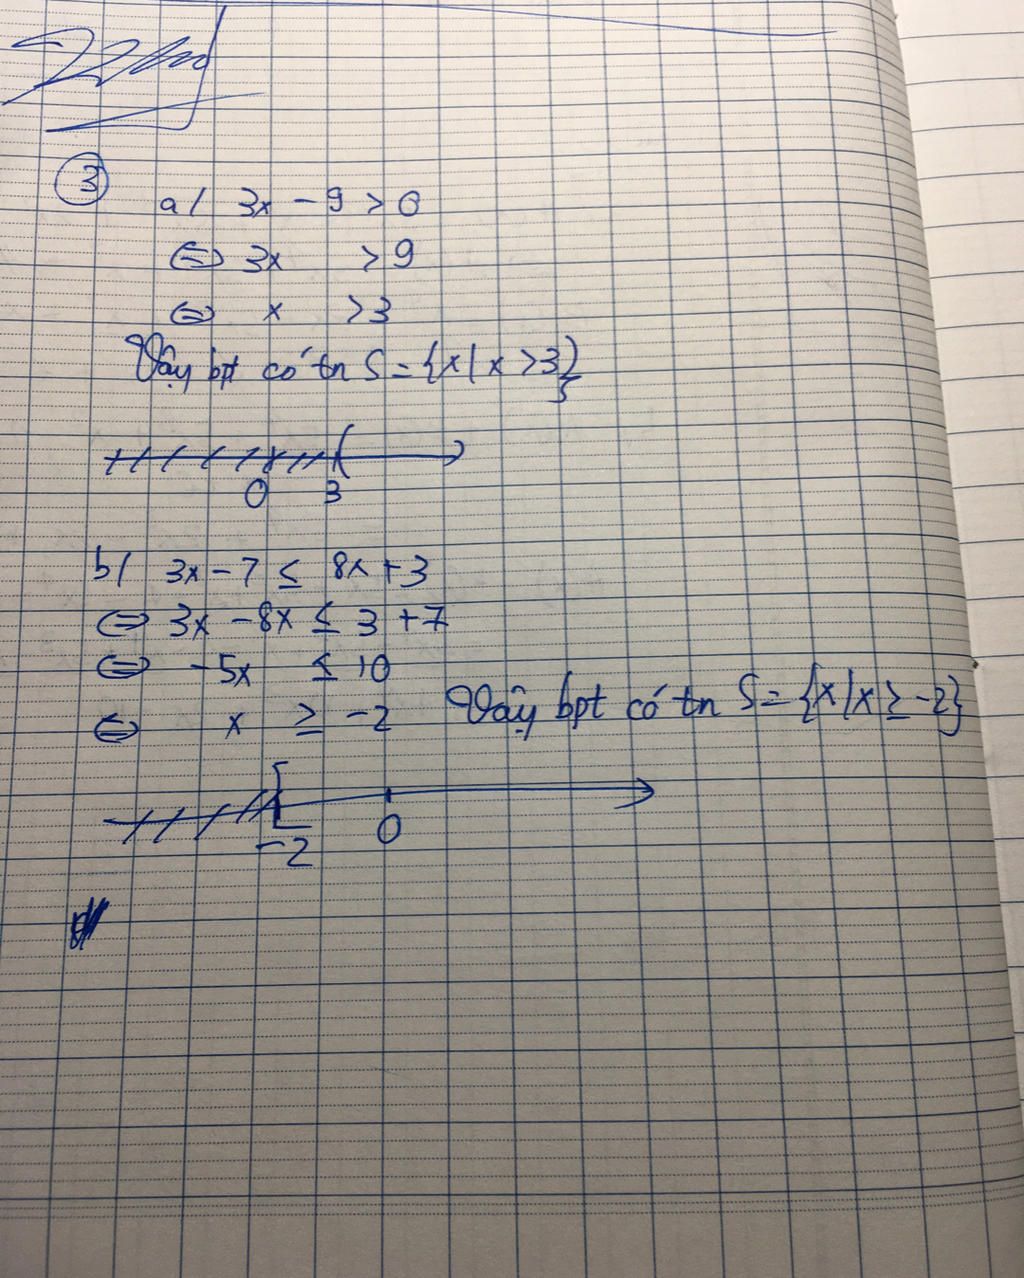 3
a/ 3x - 9 > 0
⇔ 3x > 9
⇔ x > 3
Vậy bpt có tn S = {x | x > 3}
0 3
b/ 3x - 7 ≤ 8x + 3
⇔ 3x - 8x ≤ 3 + 7
⇔ -5x ≤ 10
⇔ x ≥ -2 Vậy bpt có tn S = {x | x ≥ -2}
-2 0